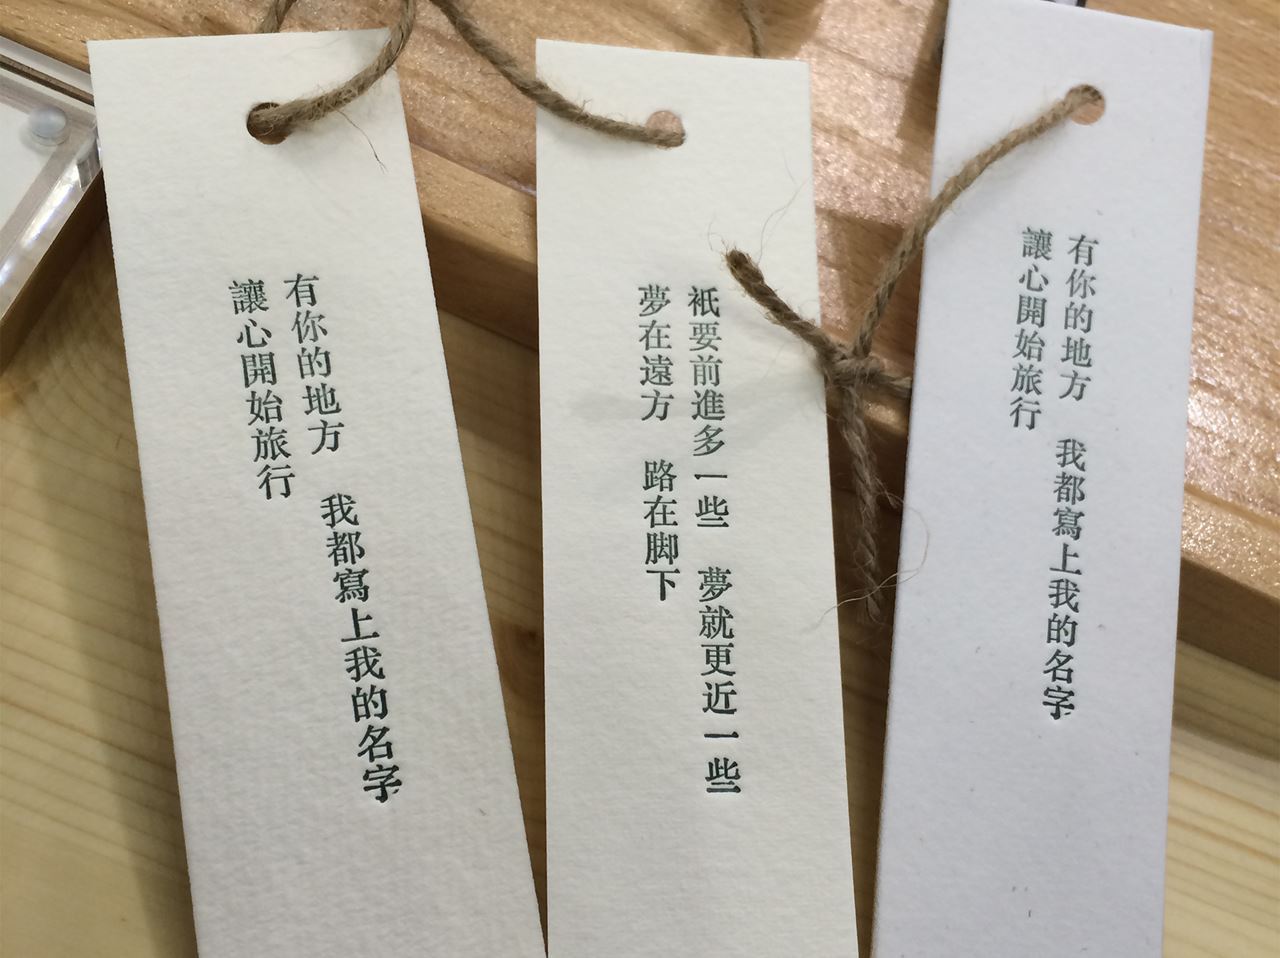 有你的地方 我都寫上我的名字
讓心開始旅行
衹要前進多一些 夢就更近一些
夢在遠方 路在脚下
有你的地方 我都寫上我的名字
讓心開始旅行